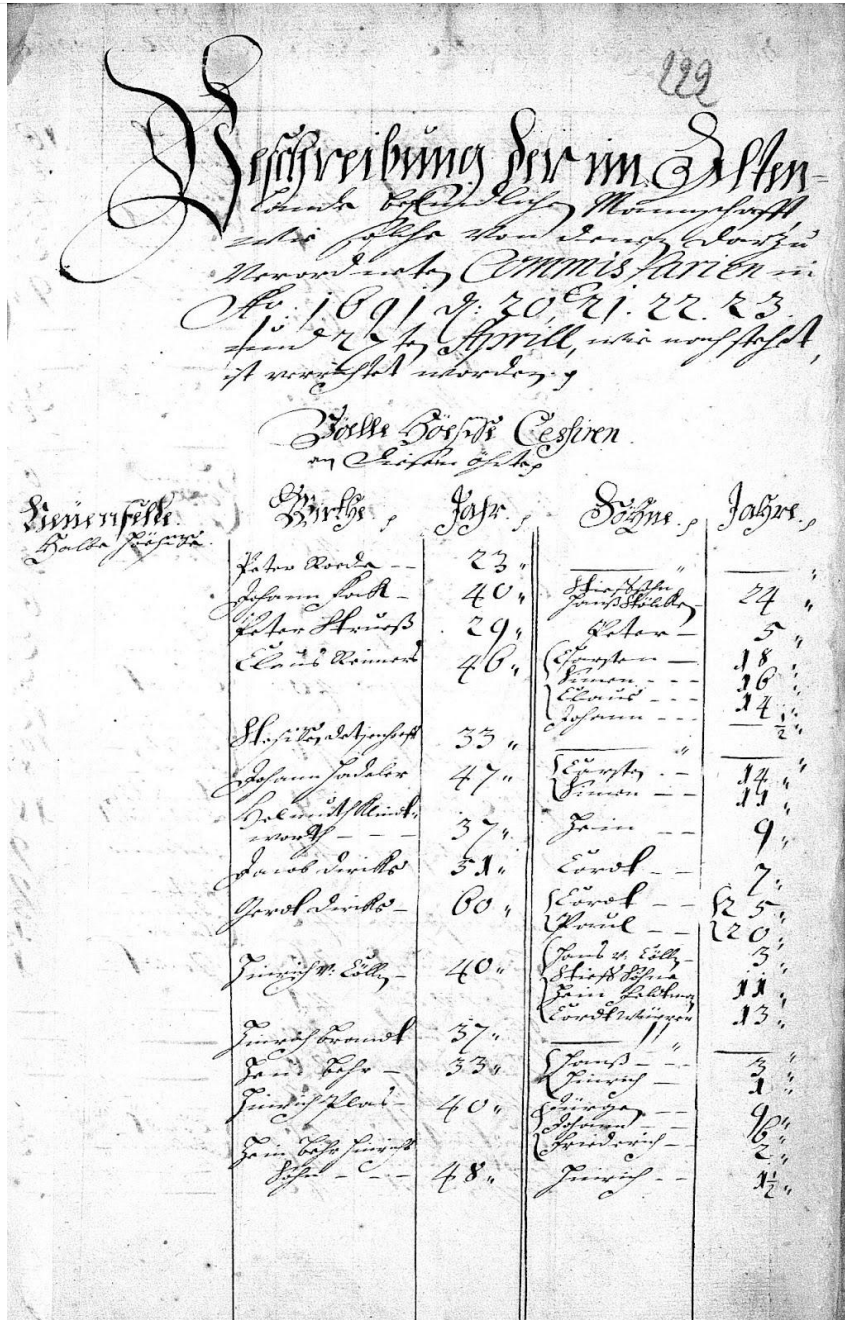 222
Beschreibung der im Alten-
Lande befindlichen Mannschafft,
wie solche von denen darzu
Verordneten Commissarien in
Ao. 1691 d. 20, 21. 22. 23.
und 27ten Aprill, wie nachstehet,
ist verrichtet worden.
an diesem ohrte
Neuenfelde. Wirthe. Jahr. Söhne. Jahre.
Halbe Höefe.
Peter Roede -- 23. ———
Johann Fock - 40. Stiefsohn Hanß Stölken 24
Peter Strueß 29. Peter - 5
Claus Reimers 46. Carsten — 18
Simon --- 16
Claus --- 14
Johann --- ½
33. ———
Johann Hadeler 47. Carsten -- 14
Simon -- 11
Helmuth Klinck-
worth --- 37. Hein -- 9
Jacob Dircks 31. Cordt -- 7
Gerdt Dircks - 60. Cordt -- 25
Paul -- 20
Hinrich v. Cölln - 40. Hans v. Cölln - 3
Stieff Söhne
Hein Feldtman 11
Cordt 13
Hinrich Brandt 37. ———
Hein Behr - 33. Hanß -- 3
Hinrich - 1
Hinrich Plas - 40. Jürgen -- 9
Johann -- 6
Friederich - 2
Hein Behr Hinrichs
Sohn --- 48. Hinrich -- 1½